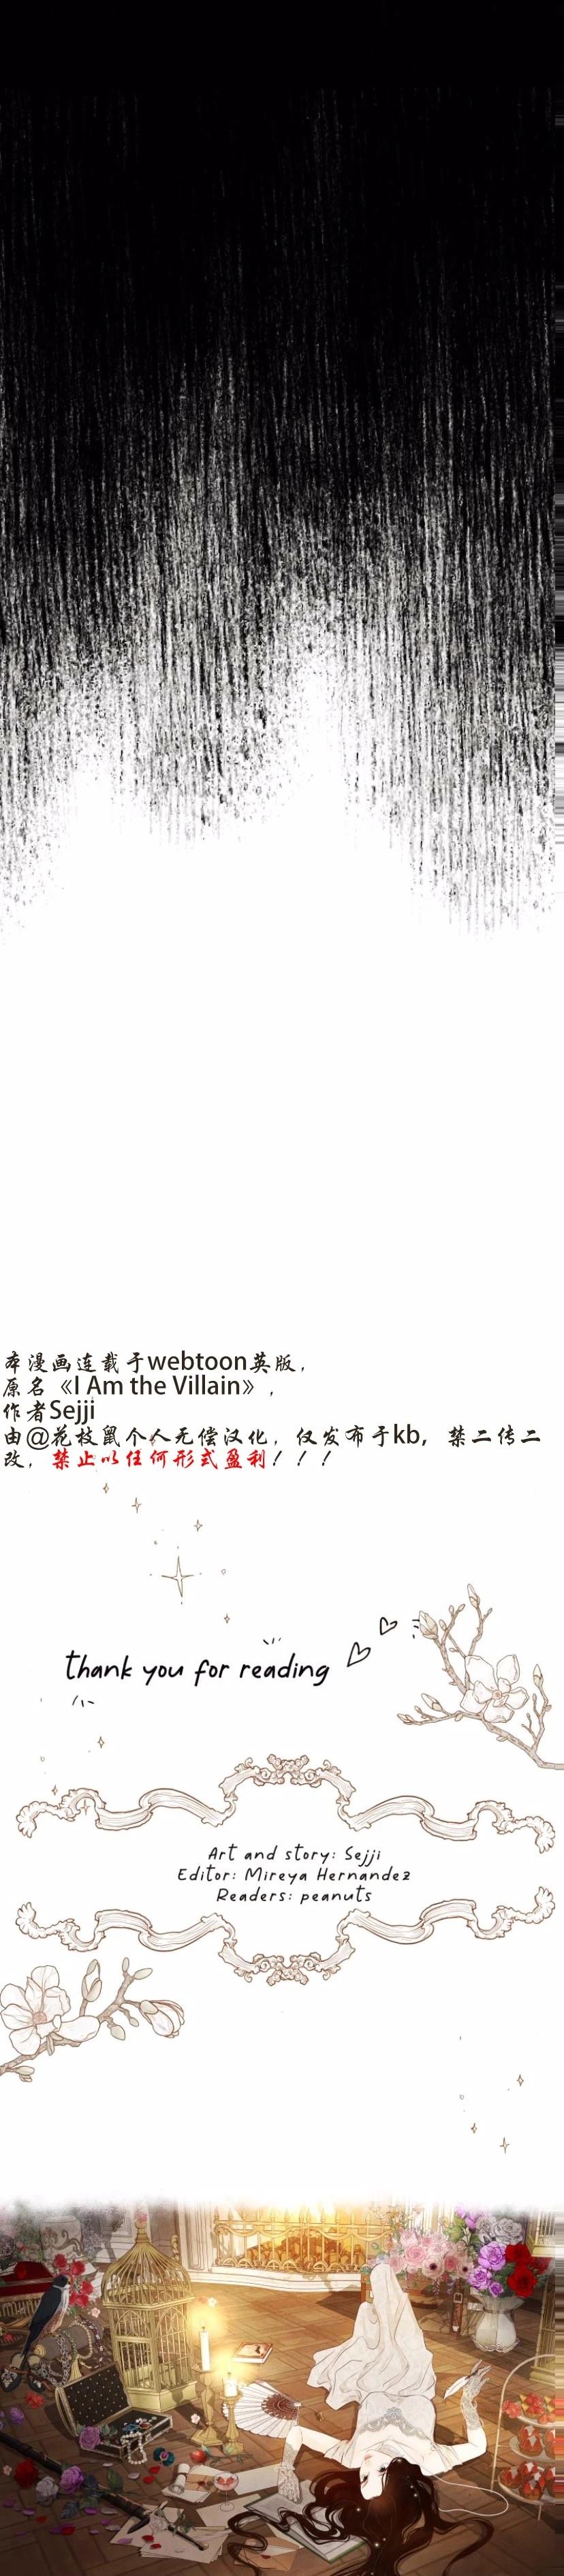 本漫画连载于webtoon英版，
原名《I Am the Villain》，
作者Sejji
由@花枝鼠个人无偿汉化，仅发布于kb，禁二传二
改，禁止以任何形式盈利！！！
thank you for reading
Art and story: Sejji
Editor: Mireya Hernandez
Readers: peanuts